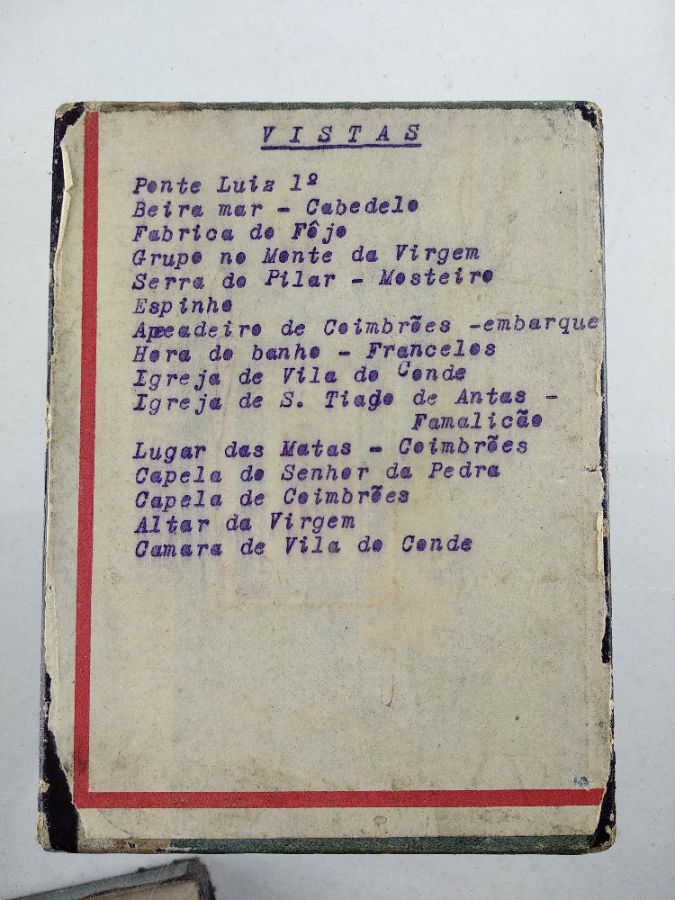 VISTAS
Ponte Luiz 1º
Beira mar - Cabedelo
Fabrica do Fôjo
Grupo no Monte da Virgem
Serra do Pilar - Mosteiro
Espinho
Apeadeiro de Coimbrões -embarque
Hora do banho - Francelos
Igreja de Vila do Conde
Igreja de S. Tiago de Antas -
Famalicão
Lugar das Matas - Coimbrões
Capela do Senhor da Pedra
Capela de Coimbrões
Altar da Virgem
Camara de Vila do Conde